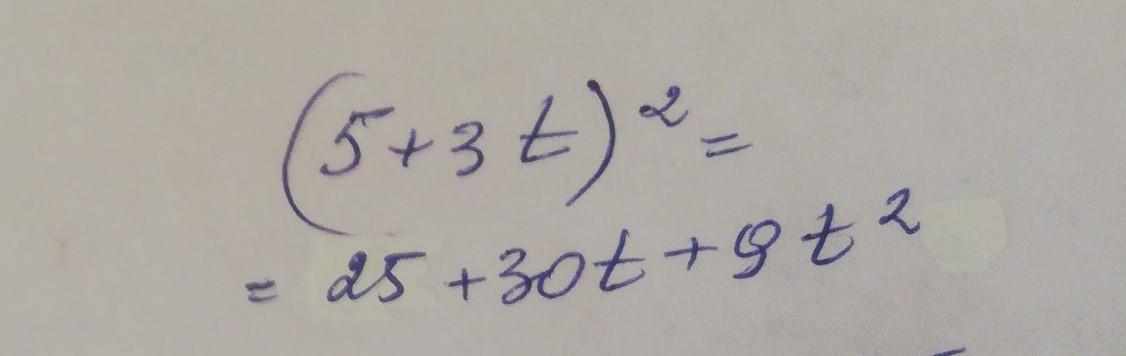 (5+3t)² =
= 25+30t+9t²